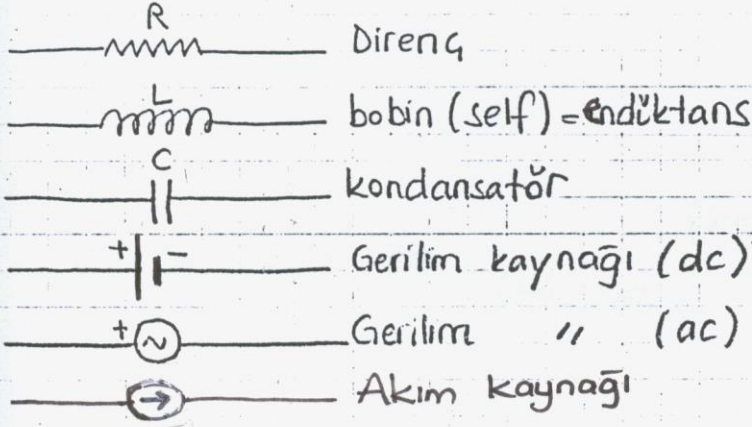 R
Direnç
L
bobin (self) = endüktans
C
kondansatör
+ - Gerilim kaynağı (dc)
+ ~ Gerilim " (ac)
→ Akım kaynağı